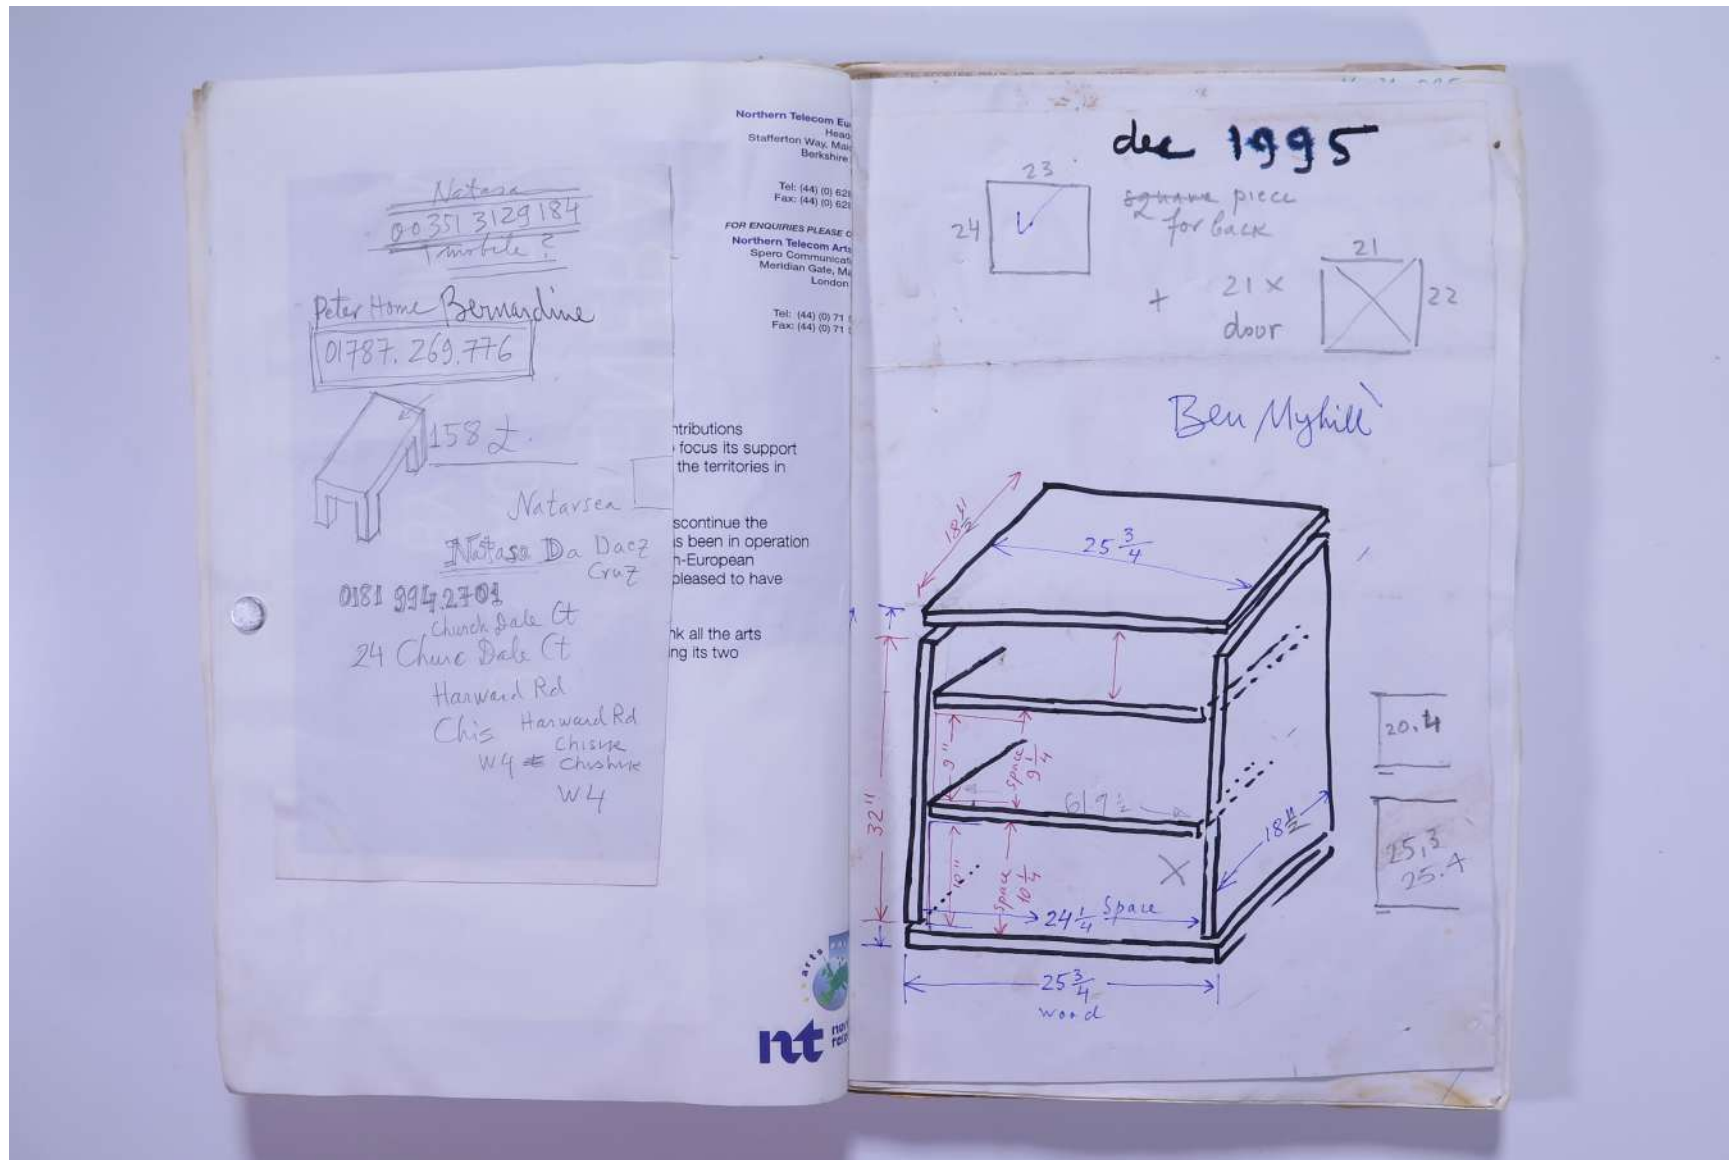 Natasa
00351 3129184
1 mobile ?
Peter Home Bernardine
01787. 269.776
158
Natarsea
Natasa Da Dacz
Cruz
0181 994.2701
Church Dale Ct
24 Churc Dale Ct
Harward Rd
Chis Harward Rd
W4
W4
Northern Telecom Eu
Head
Stafferton Way, Mai
Berkshire
Tel: (44) (0) 628
Fax: (44) (0) 628
FOR ENQUIRIES PLEASE C
Northern Telecom Arts
Spero Communicati
Meridian Gate, Ma
London
Tel: (44) (0) 71
Fax: (44) (0) 71
ntributions
focus its support
the territories in
scontinue the
s been in operation
n-European
pleased to have
nk all the arts
ng its two
arts
nt
dec 1995
23
24
square piece
for back
21
+ 21 x
door
22
Ben Myhill
18 1/2
25 3/4
32"
9"
space 9 1/4
10"
space 10 1/4
X
24 1/4 Space
18 1/2
25 3/4
wood
20.4
25,3
25.4